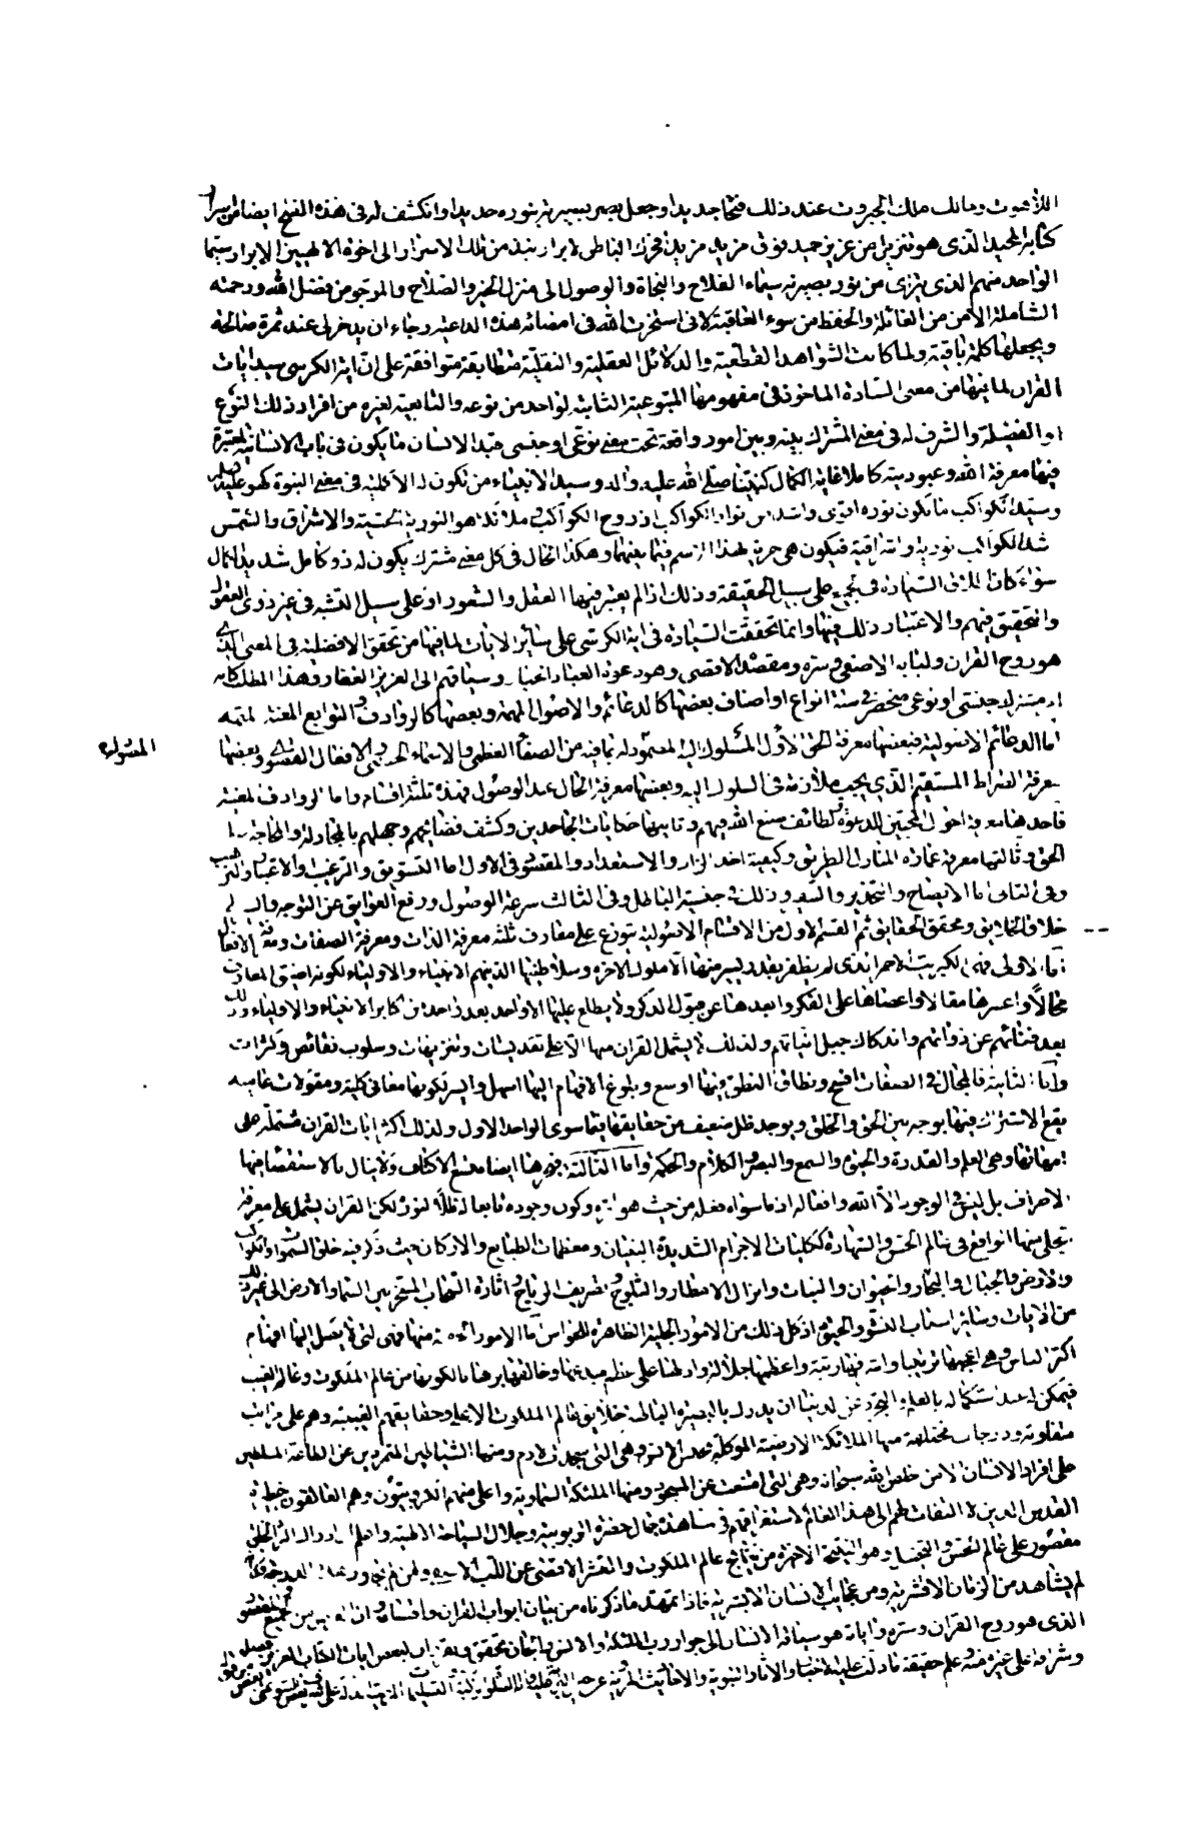 اللاهوت ومالك ملك الجبروت عند ذلك فتحا جديدا وجعل بصر بصيرته بنوره حديدا وانكشف له فى هذه الفتح ايضا من اسرار
كتابه المجيد الذى هو تنزيل من عزيز حميد فوق مزيد مزيد فحرك الباطن لابراز نبذ من تلك الاسرار الى اخوة الالهيين الابرار سيما
الواحد منهم الذى يترئ من نور بصيرته سيماء الفلاح والنجاة والوصول الى منزل الخير والصلاح والمرجو من فضل الله ورحمته
الشاملة الامن من الغائلة والحفظ من سوء العاقبة لانى استخرت الله فى امضائه هذه الداعية رجاء ان يدخر لى عنده ثمرة صالحة
ويجعلها كلمة باقية ولما كانت الشواهد القطعية والدلائل العقلية والنقلية متطابقة متوافقة على ان اية الكرسى سيد ايات
القران لما فيها من معنى السادة الماخوذ فى مفهومها المتبوعية الثابتة لواحد من نوعه والتابعية لغيره من افراد ذلك النوع
او الفضيلة والشرف له فى معنى المشترك بينه وبين امور واقعة تحت معنى نوعى او جنسى فسيد الانسان ما يكون فى باب الانسانية المعتبرة
فيها معرفة الله وعبوديته كاملا غاية الكمال كنبينا صلى الله عليه واله وسيد الانبياء من تكون له الاكملية فى معنى النبوة كهو عليه صلى
وسيد الكواكب ما يكون نوره اقوى واشد من نوار الكواكب اذ روح الكواكب وملاكها هو النورية الحسية والاشراق والشمس
اشد الكواكب نورية واشراقية فيكون هى حرية بهذا الاسم فيما بينهما وهكذا الحال فى كل معنى مشترك يكون له ذو كامل شديد الكمال
سواء كان اطلاق السيادة فى الجميع على سبيل الحقيقة وذلك اذا لم يعتبر فيها العقل والشعور او على سبيل التشبه فى غير ذوى العقول
والتحقيق فيهم والاعتبار ذلك فيها وانما تحققت السيادة فى اية الكرسى على سائر الايات لما فيها من تحقق الافضلية فى المعنى الذى
هو روح القران ولبابه الاصفى وسره ومقصده الاقصى وهو دعوة العباد وسياقتهم الى العزيز الغفار وهذا المطلب كانه
جنسى او نوعى منحصر فى ستة انواع او اصناف بعضها كالدعائم والاصول المهمة وبعضها كالروادف والتوابع المغنية المتمة
اما الدعائم الاصولية فبعضها معرفة الحق الاول المسلوك اليه المصمود له بما فيه من الصفات العظمى والاسماء الحسنى والافعال القصوى وبعضها
المقصود
معرفة الصراط المستقيم الذى يجب ملازمته فى السلوك اليه وبعضها معرفة الحال عند الوصول فهذه ثلثة اقسام واما الروادف المغنية
فاحدها معرفة احوال المجيبين للدعوة ولطائف صنع الله فيهم وثانيها حكايات الجاحدين وكشف فضائحهم وجهلهم بالمجادلة والمحاجة
الحق وثالثها معرفة عمارة المنازل الطريق وكيفية اخذ الزاد والاستعداد والمقصود فى الاول اما التشويق والترغيب والاعتبار والترهيب
وفى الثانى اما الايضاح والتحذير والتنفير وذلك فى جنسية الباطل وفى الثالث سرعة الوصول ورفع العوايق عن التوجه
خلاق الخلايق ومحقق الحقايق ثم القسم الاول من الاقسام الاصولية يتوزع على معارف ثلثة معرفة الذات ومعرفة الصفات ومعرفة الافعال
اما الاولى فهى الكبريت الاحمر الذى لم يظفر بقدر يسير منها الا ملوك الاخرة وسلاطينها الذين هم الانبياء والاولياء لكونه اضيق المعارف
مجالا واعسرها مقالا واعصاها على الفكر وابعدها عن قبول الذكر ولا يطلع عليها الا واحد بعد واحد من اكابر الانبياء والاولياء وذلك
بعد فنائهم عن ذواتهم واندكاك جبل انياتهم ولذلك لا يشمل القران منها الا على تقديسات وتنزيهات وسلوب نقائص وكثرات
واما الثانية فالمجال فى الصفات افسح ونطاق النطق فيها اوسع وبلوغ الافهام اليها اسهل وايسر لكونها معانى كلية ومقولات عامية
يقع الاشتراك فيها بوجه بين الحق والخلق ويوجد ظل ضعيف من حقايقها فيما سوى الواحد الاول ولذلك اكثر ايات القران مشتملة على
امهاتها وهى العلم والقدرة والحيوة والسمع والبصر والكلام والحكمة واما الثالثة فبحرها ايضا متسع الاكناف ولا ينال بالاستقصاء فيها
الاطراف بل ليس فى الوجود الا الله وافعاله اذ ما سواه فعله من حيث هو وكون وجوده تابعا له ظلا لنوره لكن القران يشتمل على معرفة
تجلى منها الواقع فى عالم الحس والشهادة ككليات الاجرام الشديدة البنيان ومعظمات الطبايع والاركان حيث ذكر فيه خلق السموات والكواكب
والارض والجبال والبحار والحيوان والنبات وانزال الامطار والثلوج وتصريف الرياح واثارة السحاب المسخر بين السماء والارض الى غير ذلك
من الايات وسائر اسباب النشو والحيوة اذ كل ذلك من الامور الجلية الظاهرة للحواس اما الامور منها فهى لتى لا يصل اليها افهام
اكثر الناس وهى اعجبها ترتيبا واشرفها رتبة واعظمها جلالة وادلها على عظم مبدعها وخالقها برهانا لكونها من عالم الملكوت وعالم الغيب
فيمكن له عند استكماله بالعلم والتجرد عن لدنيا ان يدرك بالبصيرة الباطنة خلايق عالم الملكوت الاعلى وحقايقهم الغيبية وهم على مراتب
متفاوتة ودرجات مختلفة منها الملائكة الارضية الموكلة بجنس الانس وهى التى سجدت لادم ومنها الشياطين المتمردين عن الطاعة المسلطين
على افراد الانسان لا من خلص لله سبحانه وهى التى امتنعت عن السجود ومنها الملئكة السماوية واعلى منهم الكروبيون وهم العاكفون فى حظيرة
القدس الذين لا التفات لهم الى هذا العالم لاستغراقهم فى مشاهدة جمال حضرة الربوبية وجلال الساحة الالهية واعلم ان ادراك اكثر الخلق
مقصور على عالم الحس والتخيل وهو النتيجة الاخيرة من نتايج عالم الملكوت والقشر الاقصى عن اللب الاصفى ومن لم يجاوز هذه الدرجة فكانه
لم يشاهد من الرمان الا قشرته ومن عجايب الانسان الا بشرته فاذا تمهد ما ذكرناه من بيان ابواب القران واقسامه من جميع المقصود
الذى هو روح القران وسره ولبابه هو سياقة الانسان الى جوار رب الملئكة والانس والجان تحقق لبعض ايات الكتاب العزيز فضيلة
وشرافة على غيره منه وعلم حقيقة ما دلت عليه الاخبار والاثار النبوية والاحاديث المروية عن حملة القران على فضيلة بعض السور على بعض